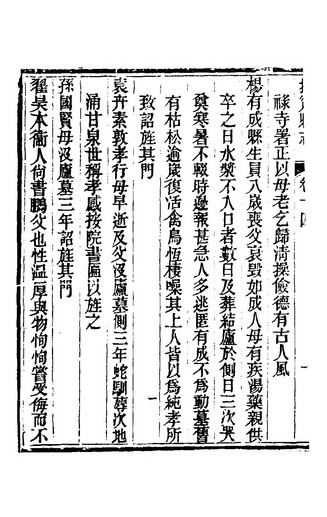 祿寺署正以母老乞歸淸操儉德有古人風
楊有成縣生員八歲喪父哀毁如成人母有疾湯藥親供
卒之日水漿不入口者數日及葬結廬於側日三次哭
奠寒暑不輟時邊報甚急人多逃匿有成不爲動墓舊
有枯松逾歲復活禽鳥恆棲噪其上人皆以爲純孝所
致詔旌其門
袁卉素敦孝行母早逝及父沒廬墓側三年蛇馴蓐次地
涌甘泉世稱孝感按院書匾以旌之
孫國賢母沒廬墓三年詔旌其門
翟昊本衞人尙書鵬父也性溫厚與物恂恂嘗受侮而不
卷十四